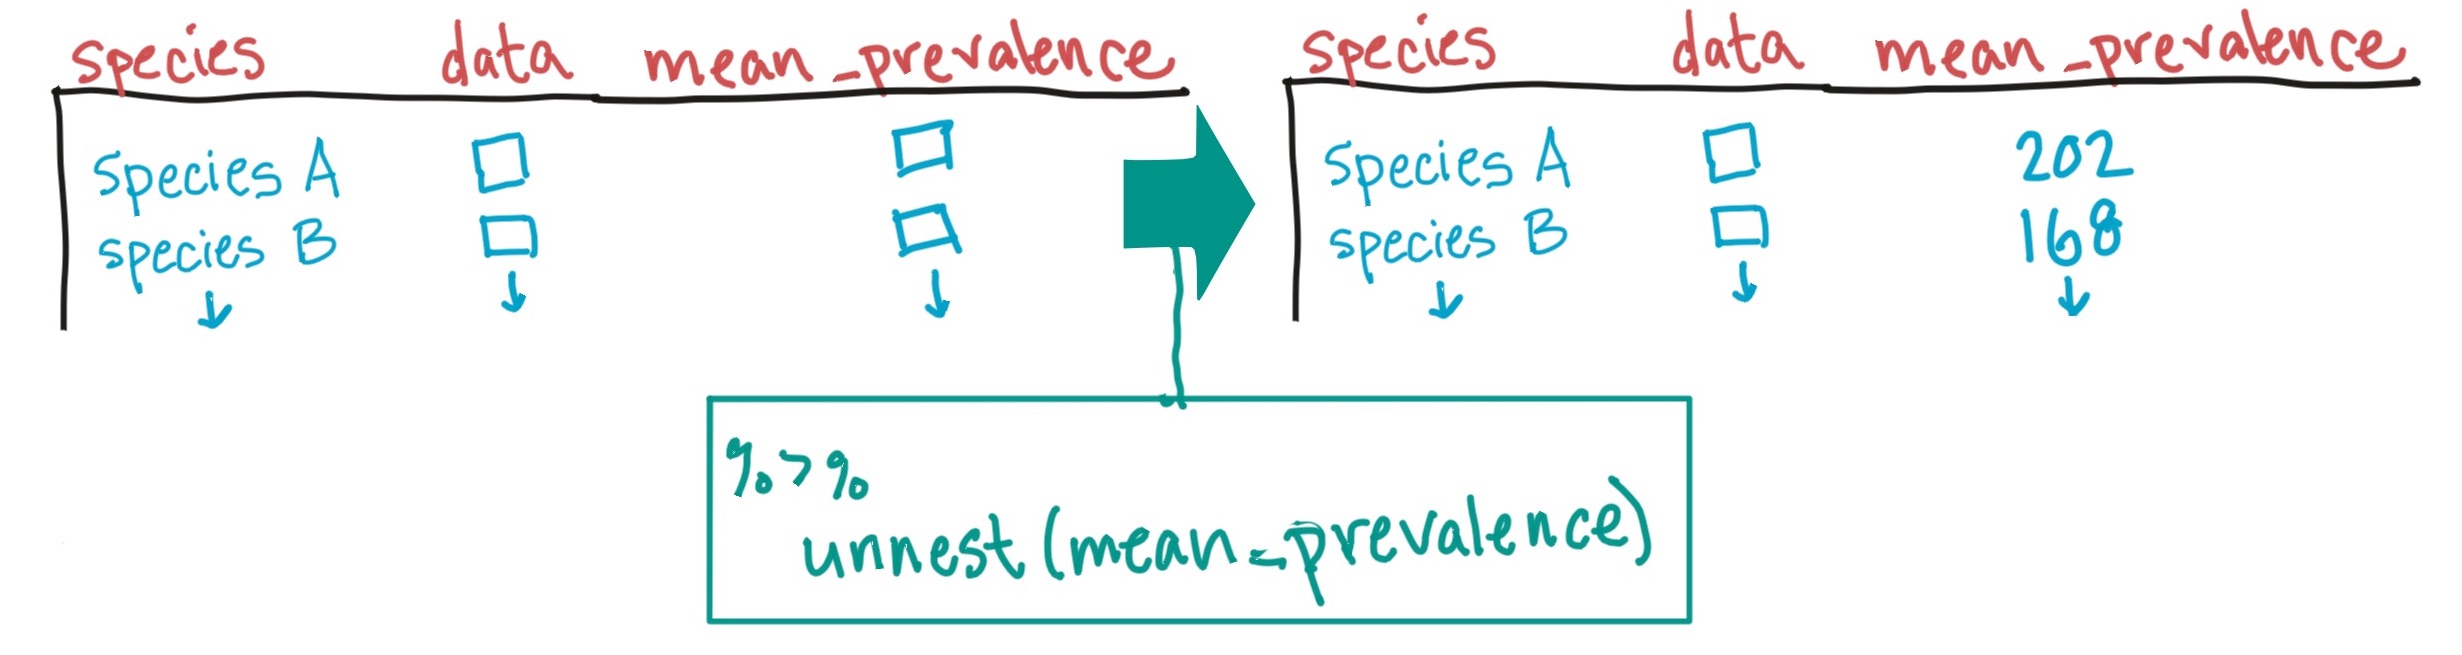 species data mean_prevalence
species A
species B
species data mean_prevalence
species A 202
species B 168
%>%
unnest (mean_prevalence)